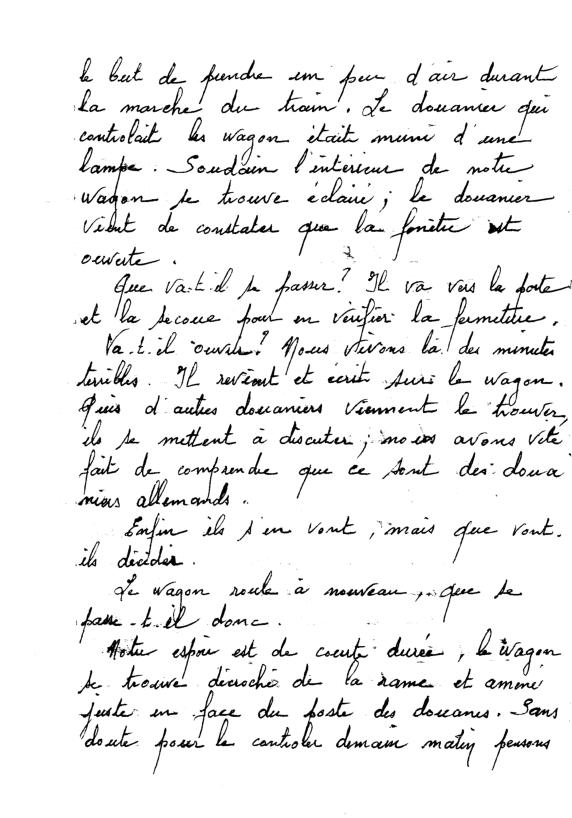 le but de prendre un peu d'air durant
la marche du train. Le douanier qui
controlait les wagon était muni d'une
lampe. Soudain l'intérieur de notre
wagon se trouve éclairé; le douanier
vient de constater que la fenêtre est
ouverte.
Que va-t-il se passer? Il va vers la porte
et la secoue pour en vérifier la fermeture.
Va-t-il ouvrir? Nous vivons là des minutes
terribles. Il revient et écrit sur le wagon.
Puis d'autres douaniers viennent le trouver,
ils se mettent à discuter; nous avons vite
fait de comprendre que ce sont des doua
niers allemands.
Enfin ils s'en vont, mais que vont-
ils décider.
Le wagon roule à nouveau, que se
passe-t-il donc.
Notre espoir est de courte durée, le wagon
se trouve décroché de la rame et amené
juste en face du poste des douanes. Sans
doute pour le controler demain matin pensons